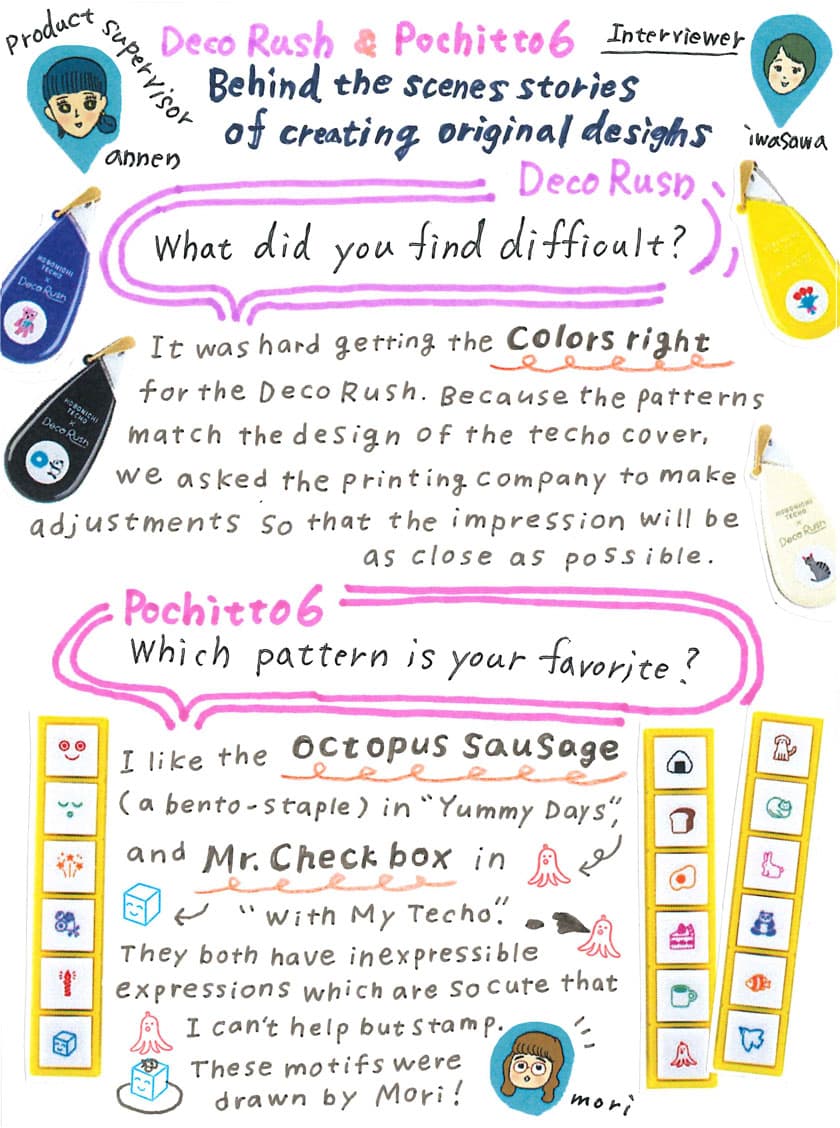 Product Supervisor
annen
Deco Rush & Pochitto6
Interviewer
iwasawa
Behind the scenes stories
of creating original desighs
Deco Rush
What did you find difficult?
HOBONICHI
TECHO
×
Deco Rush
It was hard getting the Colors right
for the Deco Rush. Because the patterns
match the design of the techo cover,
we asked the printing company to make
adjustments so that the impression will be
as close as possible.
HOBONICHI
TECHO
×
Deco Rush
HOBONICHI
TECHO
×
Deco Rush
Pochitto6
Which pattern is your favorite?
I like the octopus sausage
(a bento-staple) in "Yummy Days",
and Mr. Check box in
"With My Techo".
They both have inexpressible
expressions which are so cute that
I can't help but stamp.
These motifs were
drawn by Mori!
mori